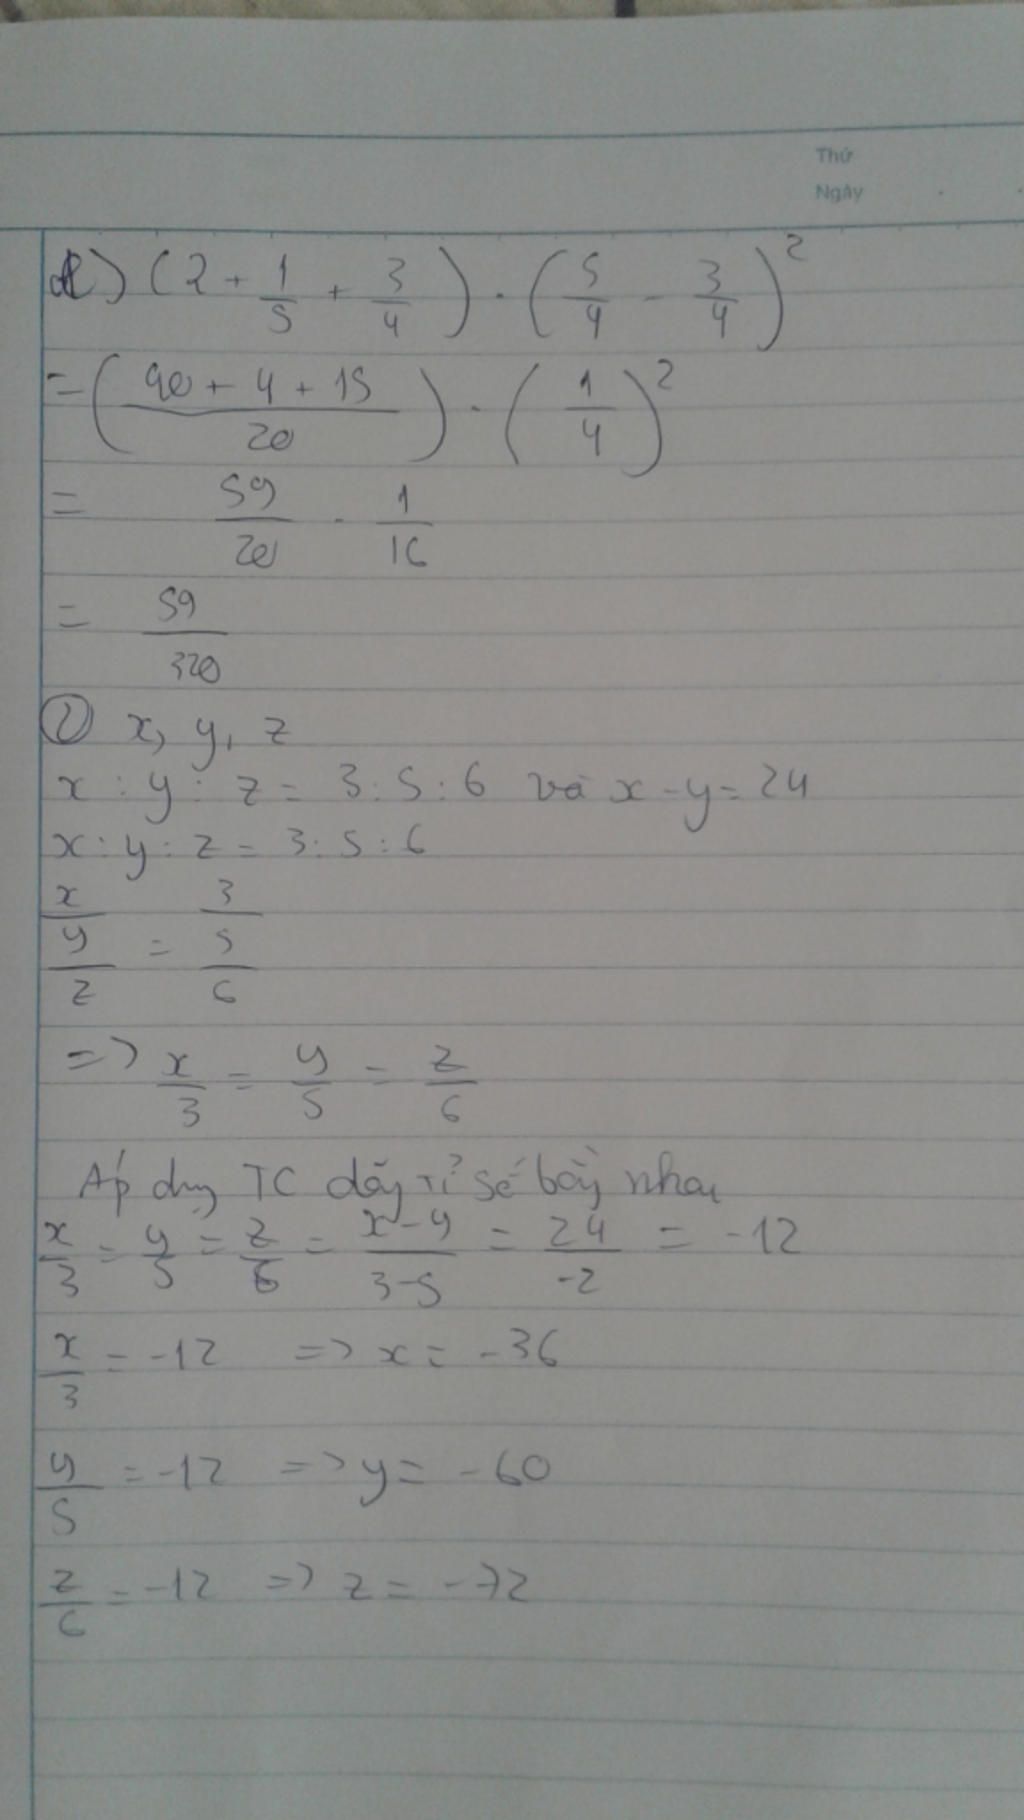 Thứ
Ngày
d) (2 + 1/5 + 3/4) . (5/4 - 3/4)²
= ((40 + 4 + 15)/20) . (1/4)²
= 59/20 . 1/16
= 59/320
② x, y, z
x : y : z = 3 : 5 : 6 và x - y = 24
x : y : z = 3 : 5 : 6
x/y/z = 3/5/6
=> x/3 = y/5 = z/6
Áp dụng TC dãy tỉ số bằng nhau
x/3 = y/5 = z/6 = (x - y)/(3 - 5) = 24/-2 = -12
x/3 = -12 => x = -36
y/5 = -12 => y = -60
z/6 = -12 => z = -72